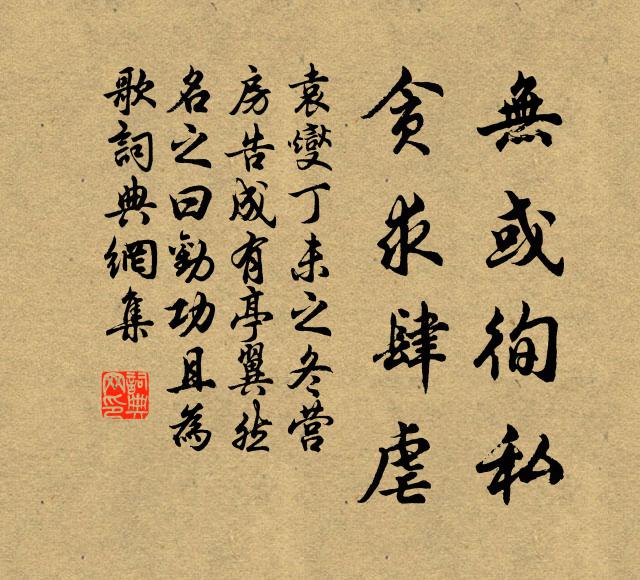 無或徇私
貪求肆虐
袁燮丁未之冬营
房告成有亭翼然
名之曰勸功且為
歌詞典網集
詞典
网印